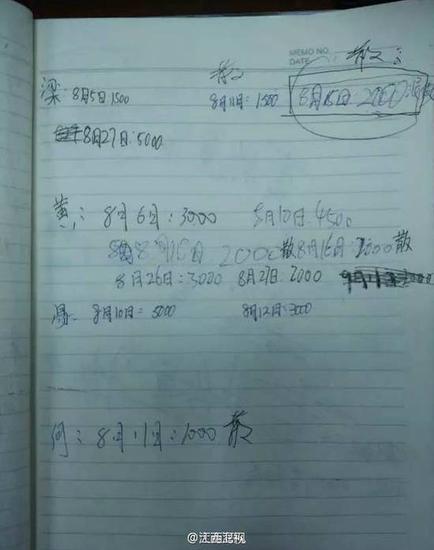 MEMO NO.
DATE
散 散:
梁:8月5日:1500 8月11日:1500 8月15日:2000
8月27日:5000
黄:8月6日:3000 8月10日:4500
8月15日 2000散 8月16日:2000散
8月26日:3000 8月27日:2000
冯:8月10日:5000 8月12日:3000
何:8月11日:1000 散
@江西晨视